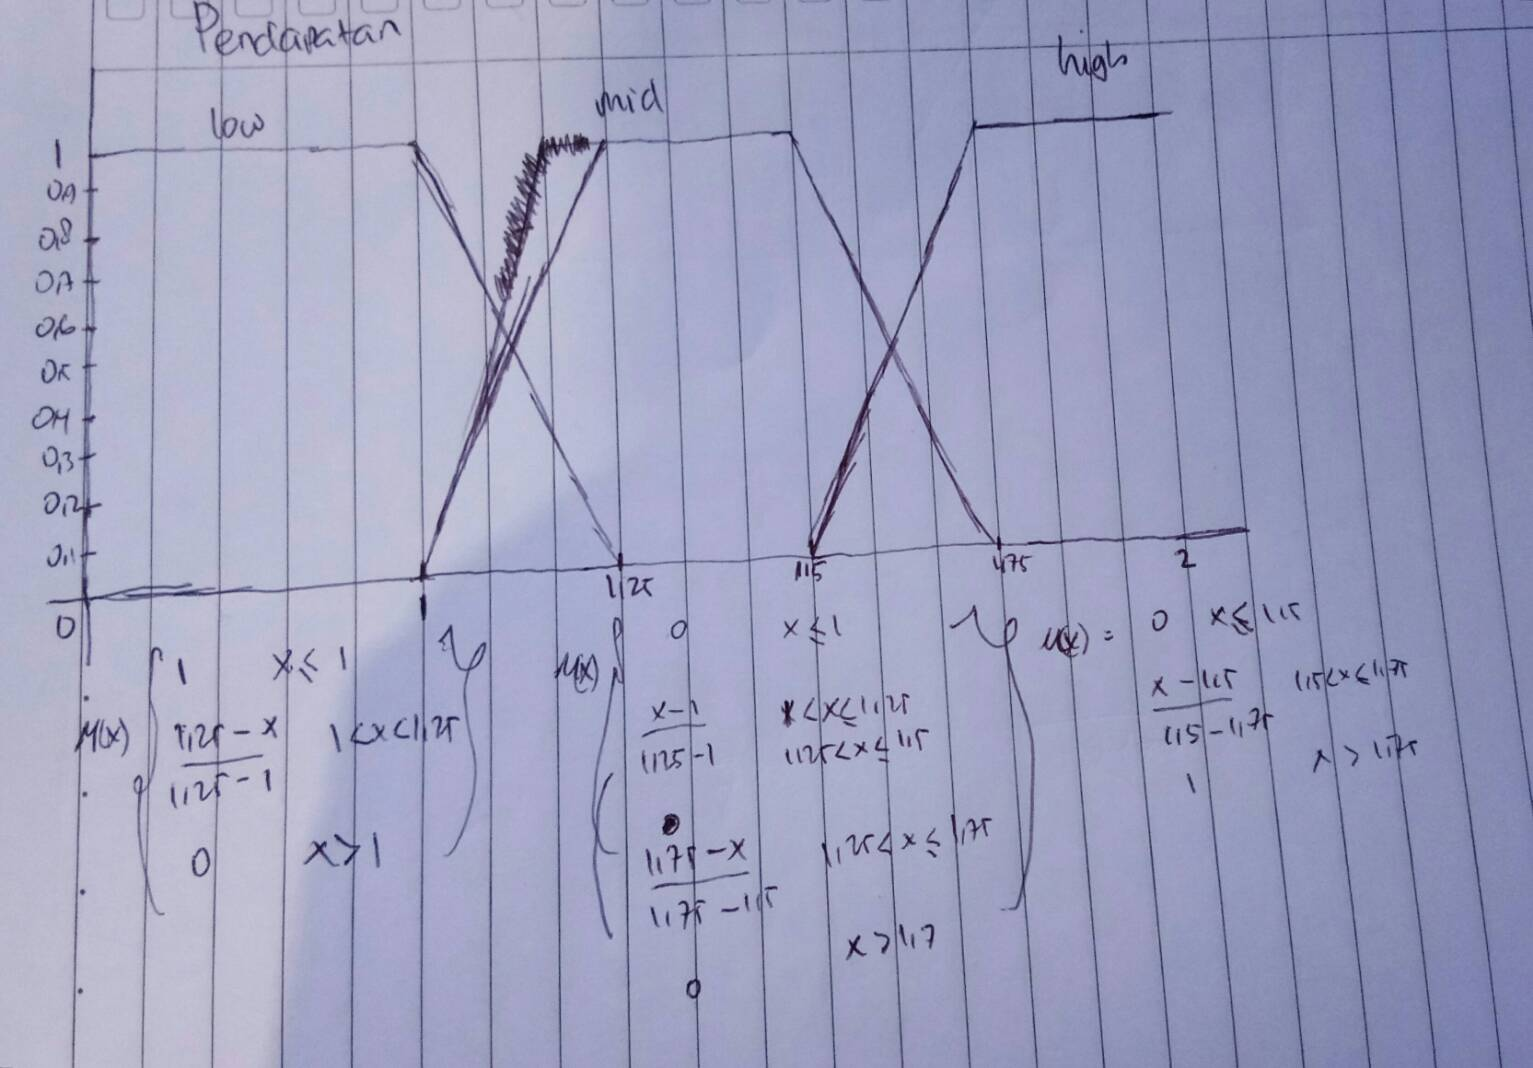 Pendapatan
low
mid
high
1
0,9
0,8
0,7
0,6
0,5
0,4
0,3
0,2
0,1
0
1
1,25
1,5
1,75
2
M(x)
1 x ≤ 1
1,25 - x
1,25 - 1
1 < x < 1,25
0 x > 1
M(x)
0 x ≤ 1
x - 1
1,25 - 1
1 < x ≤ 1,25
1,25 < x ≤ 1,5
1,75 - x
1,75 - 1,5
1,25 < x ≤ 1,75
x > 1,7
0
M(x) = 0 x ≤ 1,5
x - 1,5
1,5 - 1,75
1,5 < x ≤ 1,75
1 x > 1,75